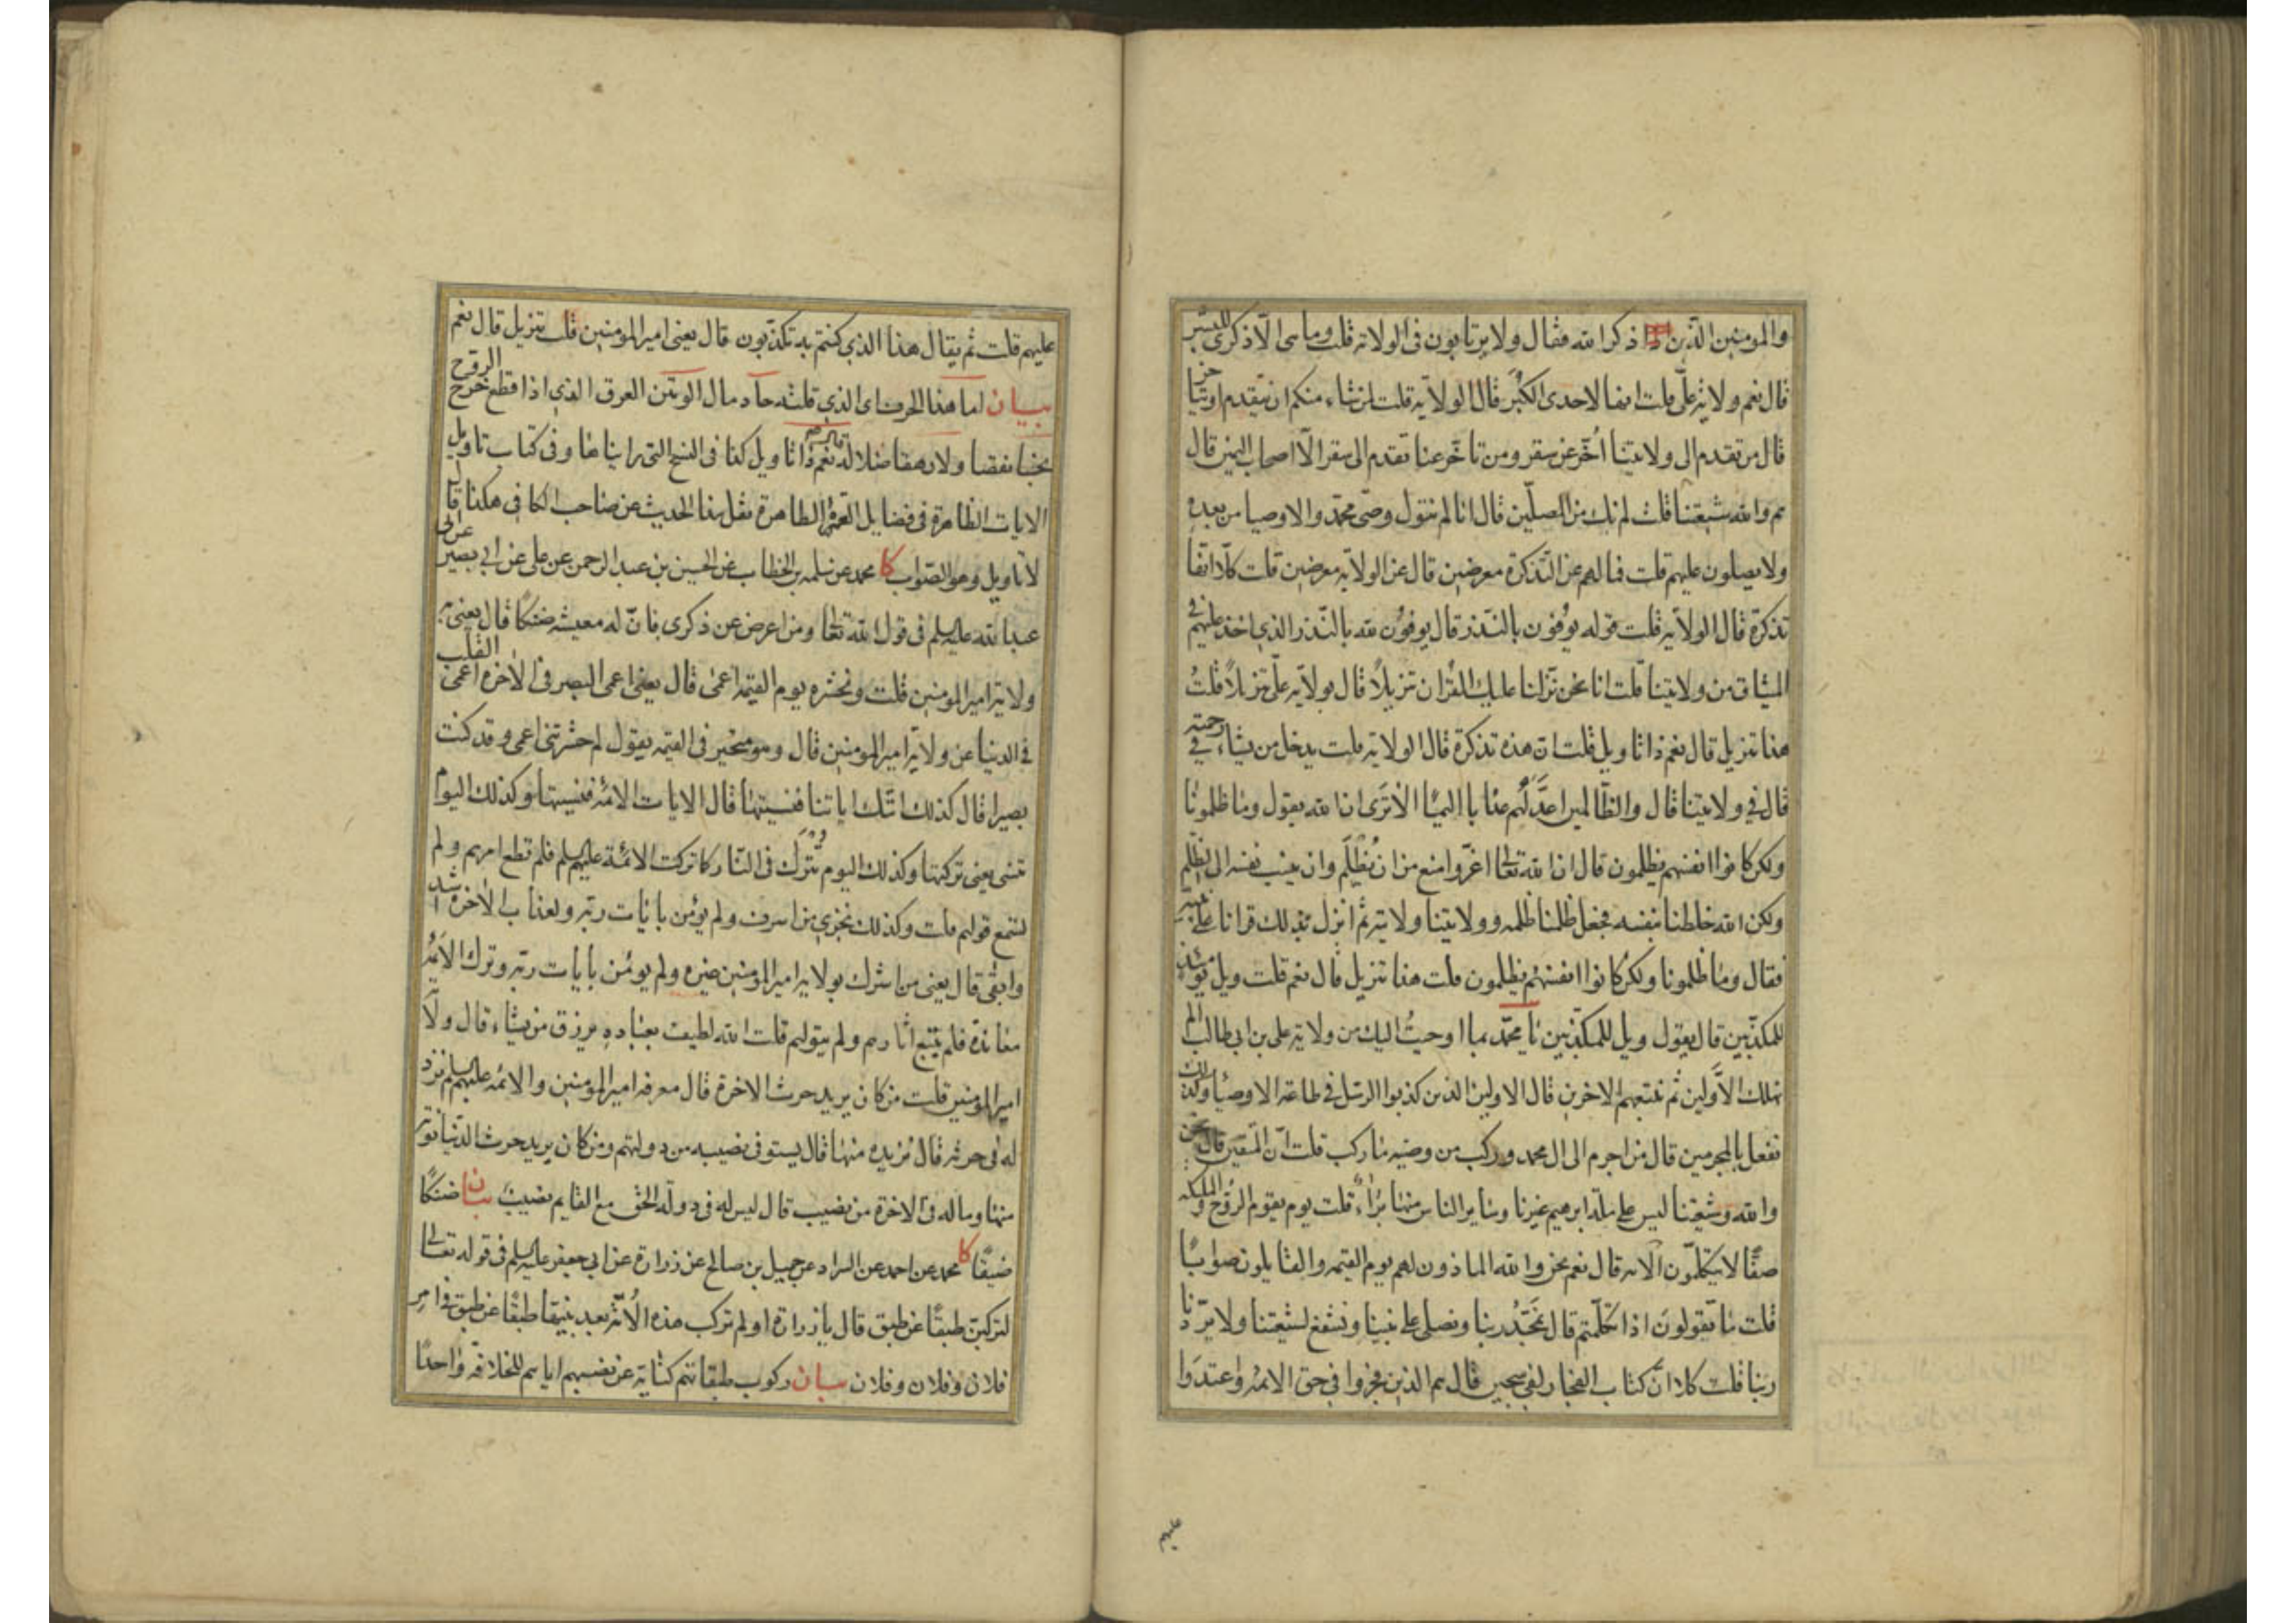 والمومنين الذين ذكر الله فقال ولا يرتابون فى الولاية قلت وما هى الا ذكرى للبشر
قال نعم ولاية على قلت انها لاحدى الكبر قال الولاية قلت لمن شاء منكم ان يتقدم او يتاخر
قال من تقدم الى ولايتنا اُخّر عن سقر ومن تاخر عنا تقدم الى سقر الا اصحاب اليمين قال
هم والله شيعتنا قلت لم نك من المصلّين قال انا لم نتول وصى محمد والاوصيا من بعده
ولا يصلون عليهم قلت فما لهم عن التذكرة معرضين قال عن الولاية معرضين قلت كلا انها
تذكرة قال الولاية قلت قوله يوفون بالنذر قال يوفون لله بالنذر الذى اخذ عليهم فى
الميثاق من ولايتنا قلت انا نحن نزلنا عليك القران تنزيلاً قال بولاية على تنزيلاً قلتُ
هذا تنزيل قال نعم ذا تاويل قلت ان هذه تذكرة قال الولاية قلت يدخل من يشاء فى رحمته
قال فى ولايتنا قال والظالمين اعدّ لهم عذابا اليما الا ترى ان الله يقول وما ظلمونا
ولكن كانوا انفسهم يظلمون قال ان الله تعالى اعزّ وامنع من ان يُظلَم وان ينسب نفسه الى الظلم
ولكن الله خلطنا بنفسه فجعل ظلمنا ظلمه وولايتنا ولايته ثم انزل بذلك قرانا على نبيه
فقال وما ظلمونا ولكن كانوا انفسهم يظلمون قلت هذا تنزيل قال نعم قلت ويل يومئذ
للمكذبين قال يقول ويل للمكذبين يا محمد بما اوحيتُ اليك من ولاية على بن ابى طالب الم
نهلك الاَوّلين ثم نتبعهم الاخرين قال الاولين الذين كذبوا الرسل فى طاعة الاوصيا وكذلك
نفعل بالمجرمين قال من اجرم الى ال محمد وركب من وصيه ما ركب قلت ان المتقين قال نحن
والله وشيعتنا ليس على ملة ابرهيم غيرنا وسائر الناس منها براءٌ قلت يوم يقوم الروح والملئكة
صفّا لا يتكلّمون الاية قال نعم نحن والله الماذون لهم يوم القيمة والقايلون صوابًا
قلت ما تقولون اذا تكلّمتم قال نُمَجّد ربنا ونصلى على نبينا ونشفع لشيعتنا ولا يردّنا
ربنا قلت كلا ان كتاب الفجار لفى سجين قال هم الذين فجروا فى حق الائمة واعتدوا
عليهم
عليهم قلت ثم يقال هذا الذى كنتم به تكذبون قال يعنى امير المومنين قلت تنزيل قال نعم
بيان لما هذا الحرف اى الذى قلته حاد مال الوتين العرق الذى اذا قطع خرج الروح
بخسا نقصا ولا رهقا ضلالة نعم ذا تاويل كذا فى النسخ التى رايناها وفى كتاب تاويل
الايات الظاهرة فى فضايل العترة الطاهرة نقل هذا الحديث عن صاحب الكافى هكذا قال
لا تاويل وهو الصواب كا محمد عن سلمه بن الخطاب عن الحسين بن عبد الرحمن عن على عن ابى بصير عن ابى
عبد الله عليه السلم فى قول الله تعالى ومن اعرض عن ذكرى فان له معيشة ضنكًا قال يعنى به
ولاية امير المومنين قلت ونحشره يوم القيمه اعمى قال يعنى اعمى البصر فى الاخرة اعمى القلب
فى الدنيا عن ولاية امير المومنين قال وهو متحير فى القيمه يقول لم حشرتنى اعمى وقد كنت
بصيرا قال كذلك اتتك اياتنا فنسيتها قال الايات الائمة فنسيتها وكذلك اليوم
تنسى يعنى تركتها وكذلك اليوم تُترك فى النار كما تركت الائمة عليهم السلم فلم تطع امرهم ولم
تسمع قولهم قلت وكذلك نجزى من اسرف ولم يؤمن بايات ربه ولعذاب الاخرة اشد
وابقى قال يعنى من اشرك بولاية امير المومنين غيره ولم يومن بأيات ربه وترك الائمة
معاندة فلم يتبع اثارهم ولم يتولهم قلت الله لطيف بعباده يرزق من يشاء قال ولاية
امير المومنين قلت من كان يريد حرث الاخرة قال معرفة امير المومنين والائمه عليهم السلم نزد
له فى حرثه قال نُزيده منها قال يستوفى نصيبه من دولتهم ومن كان يريد حرث الدنيا نوته
منها وما له فى الاخرة من نصيب قال ليس له فى دولة الحق مع القايم نصيب بيان ضنكًا
ضيقًا كا محمد عن احمد عن السراد عن جميل بن صالح عن زرارة عن ابى جعفر عليه السلم فى قوله تعالى
لتركبن طبقًا عن طبق قال يا زرارة اولم تركب هذه الامّة بعد نبيها طبقًا عن طبق فى امر
فلان وفلان وفلان بيان ركوب طبقاتهم كناية عن نصبهم اياهم للخلافة واحدًا